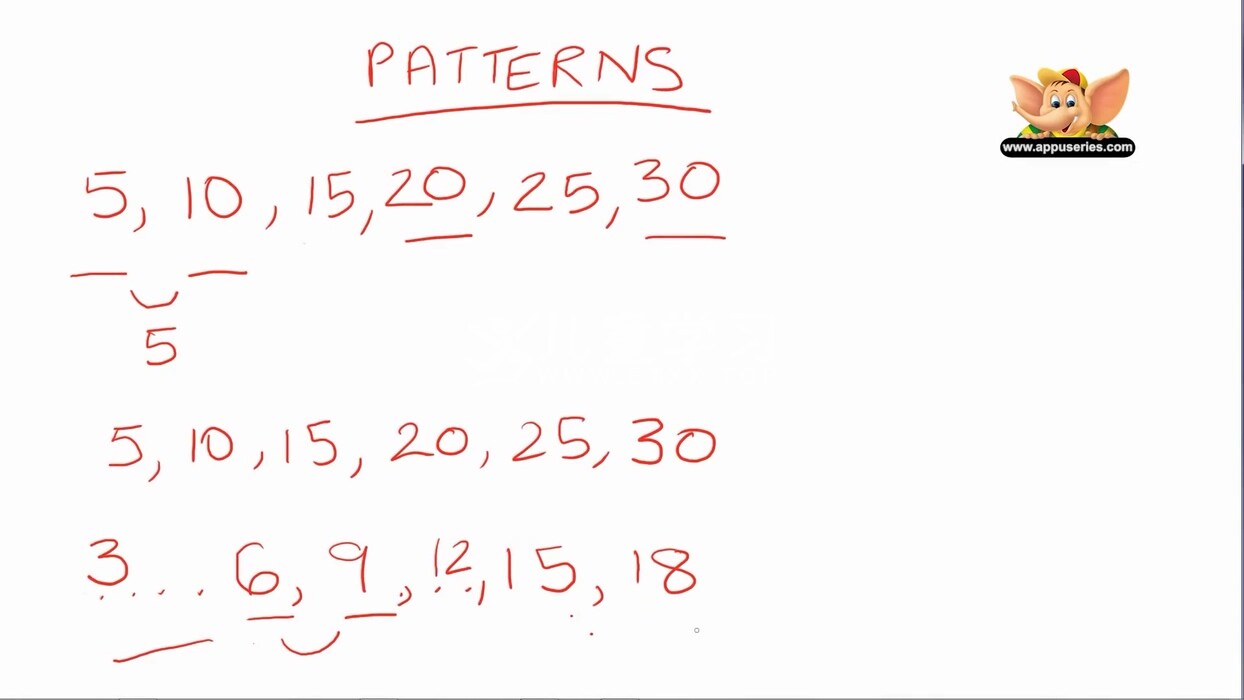 PATTERNS
www.appuseries.com
5, 10, 15, 20, 25, 30
5
5, 10, 15, 20, 25, 30
3.... 6, 9, 12, 15, 18